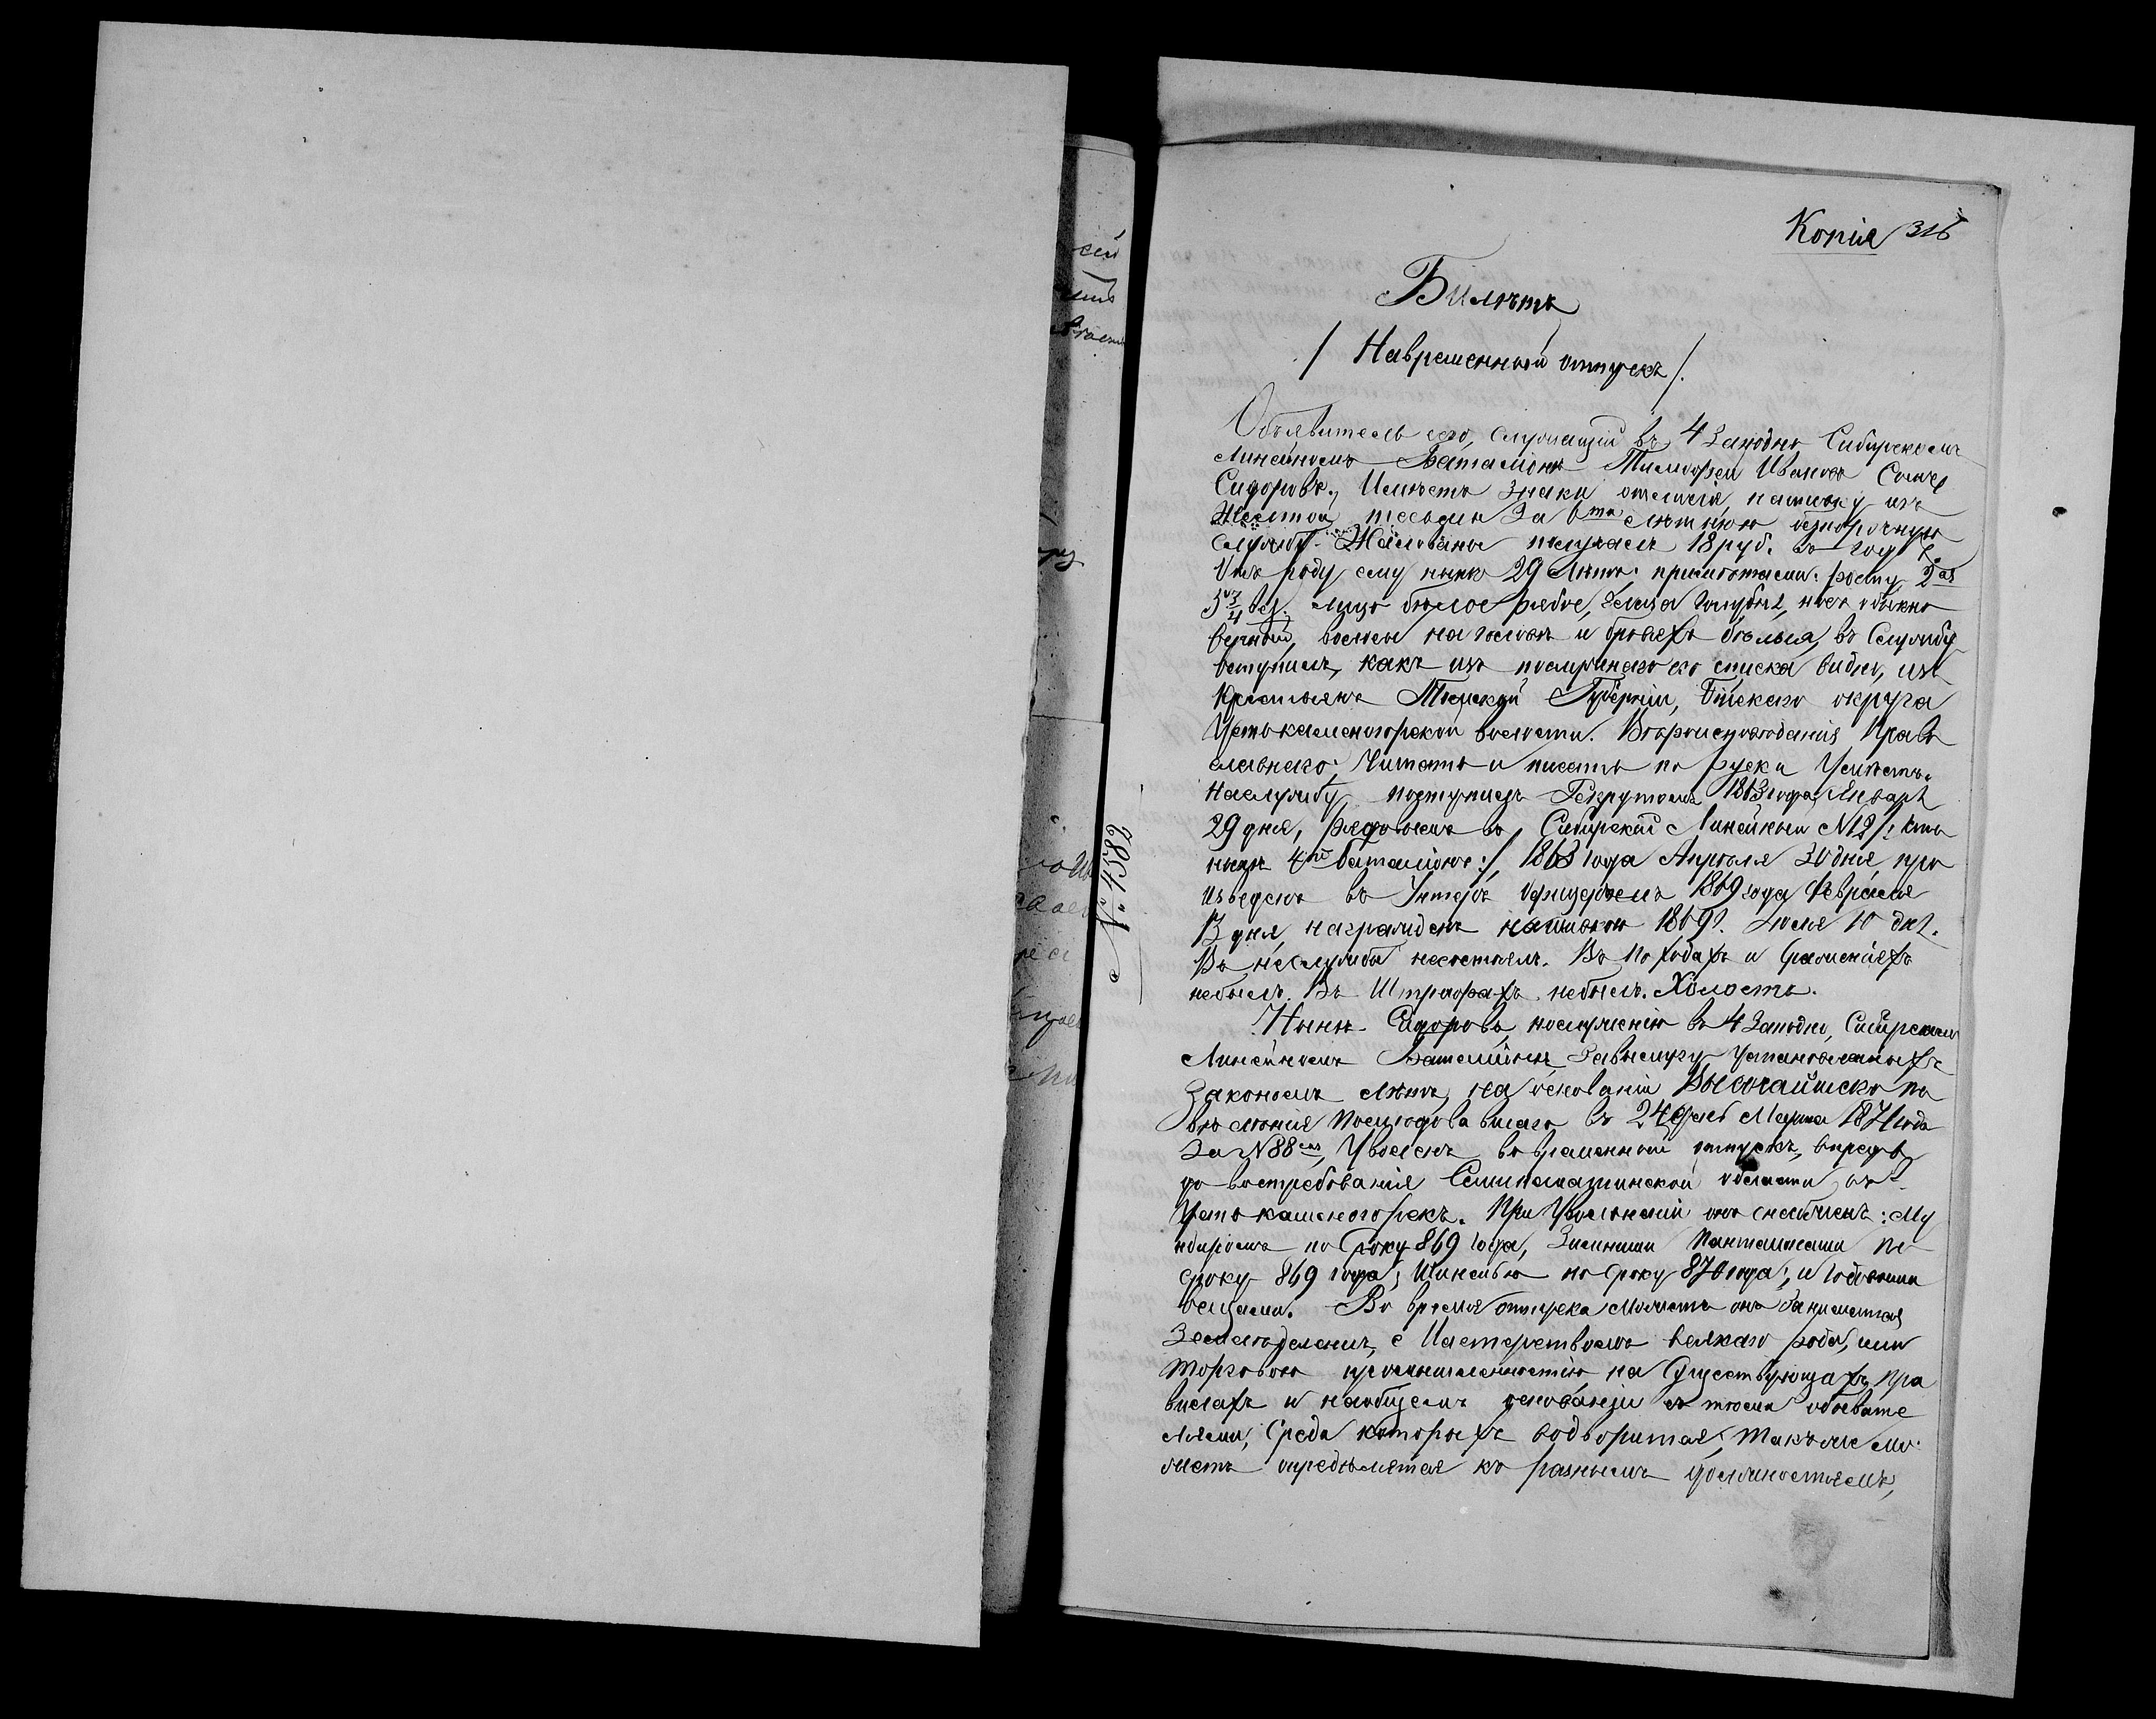 Копія 316
Билетъ
/ Навременный отпускъ /.
Объявитель сего, служащій въ 4 Западно Сибирскомъ
Линейномъ Баталіонѣ Тимофей Ивановъ Сынъ
Сидоровъ. Имѣетъ знаки отличія, нашивку изъ
Желтой тесьмы За 6ти лѣтнюю безпорочную
службу. Жалованье получалъ 18 руб. въ годъ
Отъ роду ему нынѣ 29 Лѣтъ. примѣтами: росту 2 ар
5¾ вер. лицо бѣлое рябое, глаза голубые, носъ обыкно
венный, волосы на головѣ и бровяхъ бѣлыя, въ Службу
вступилъ, какъ изъ послужнаго его списка видно, изъ
Крестьянъ Томской Губерніи, Бійскаго округа
Устькаменогорской волости. Вѣроисповѣданія Право
славнаго; Читать и писать по Руски Умѣетъ.
Наслужбу поступилъ Рекрутомъ 1863 года Января
29 дня, рядовымъ въ Сибирскій Линейный №12 /: что
нынѣ 4й баталіонъ :/, 1863 года Апрѣля 30 дня, про
изведенъ въ Унтеръ Офицеры 1869 года Февраля
13 дня, награжденъ нашивкою 1869 г. Іюля 10 дня.
Въ неслужбѣ несостоялъ. Въ Походахъ и Сраженіяхъ
небылъ. Въ Штрафахъ небылъ. Холостъ.
Нынѣ Сидоровъ, послуженію въ 4 Западно, Сибирскомъ
Линейномъ Баталіонѣ, Завыслугу Установленныхъ
Закономъ лѣтъ, на основаніи Высочайшаго по
велѣнія послѣдовавшаго въ 24 день Марта 1871 года
За №88мъ, Уволенъ во временный отпускъ, впредь
до востребованія Семипалатинской области, въ г.
Устькаменогорскъ. При Увольненіи онъ снабженъ: Му
ндиромъ по Сроку 869 года, Зимними Панталонами по
сроку 869 года; Шинелью по сроку 870 года; и годовыми
вещами. Во время отпуска Можетъ онъ Заниматся
Земледѣліемъ, Мастерствомъ всякаго рода, или
торговою промышленностію, на Существующихъ пра
вилахъ и наобщемъ основаніи съ тѣми обывате
лями, Среди которыхъ водворится, Такъ же мо
жетъ опредѣлятся къ разнымъ должностямъ,
№ 4582